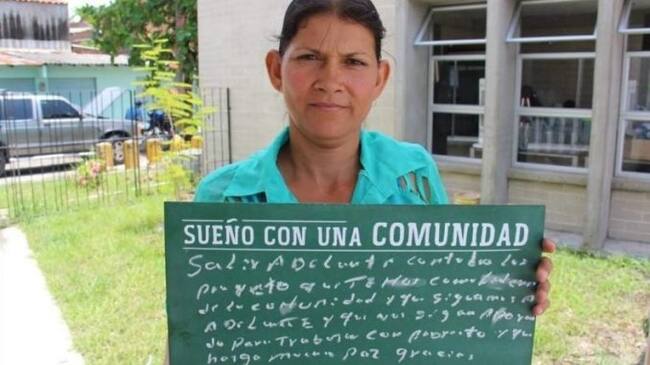 SUEÑO CON UNA COMUNIDAD
Salir ADELante con todo los
proyecto que TENemos
de la comunidad y que sigamos
ADELANTE y que nos sigan apoyan
do para Trabajar con proyecto y que
haiga mucha Paz gracias